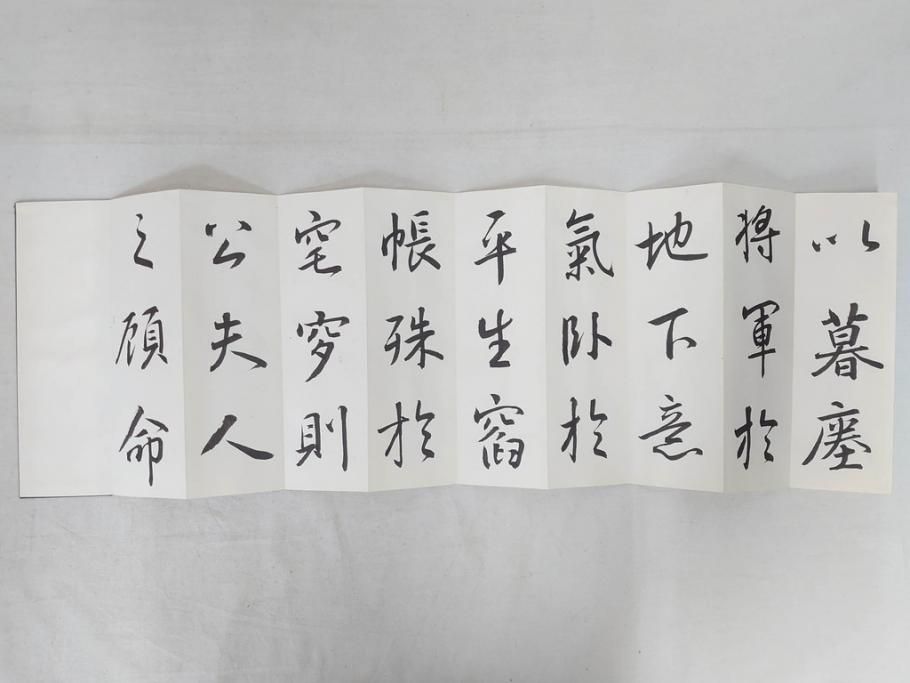 以暮
將軍於
地下意
氣卧於
平生窅
帳殊於
窀穸則
公夫人
之顧命